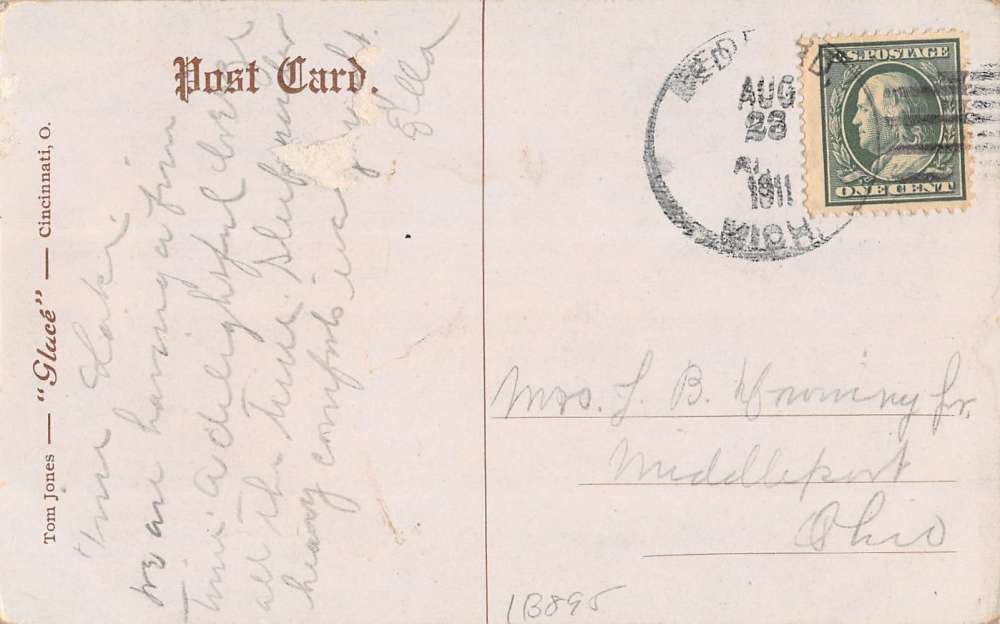 Post Card.
Tom Jones — "Glacé" — Cincinnati, O.
we are having a fine
time a delightful breeze
all the time. Sleep under
heavy comforts every night.
Ella
AUG
23
1911
U.S. POSTAGE
ONE CENT
Mrs. L. B. Downing Jr.
Middleport
Ohio
1B895